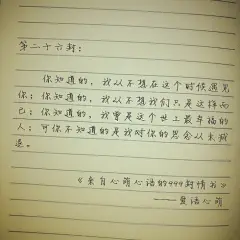 第二十六封：
你知道的，我从不想在这个时候遇见
你；你知道的，我从不想我们只是这样而
已；你知道的，我曾是这个世上最幸福的
人；可你不知道的是我对你的思念从未减
退。
《来自心萌心语的999封情书》
——莫语心萌